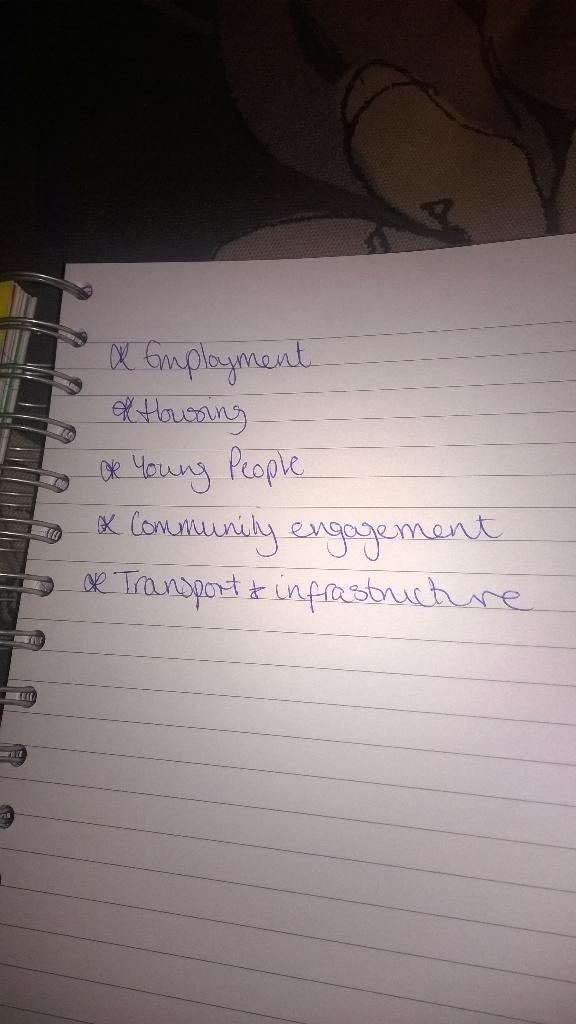 * Employment
* Housing
* Young People
* Community engagement
* Transport & infrastructure